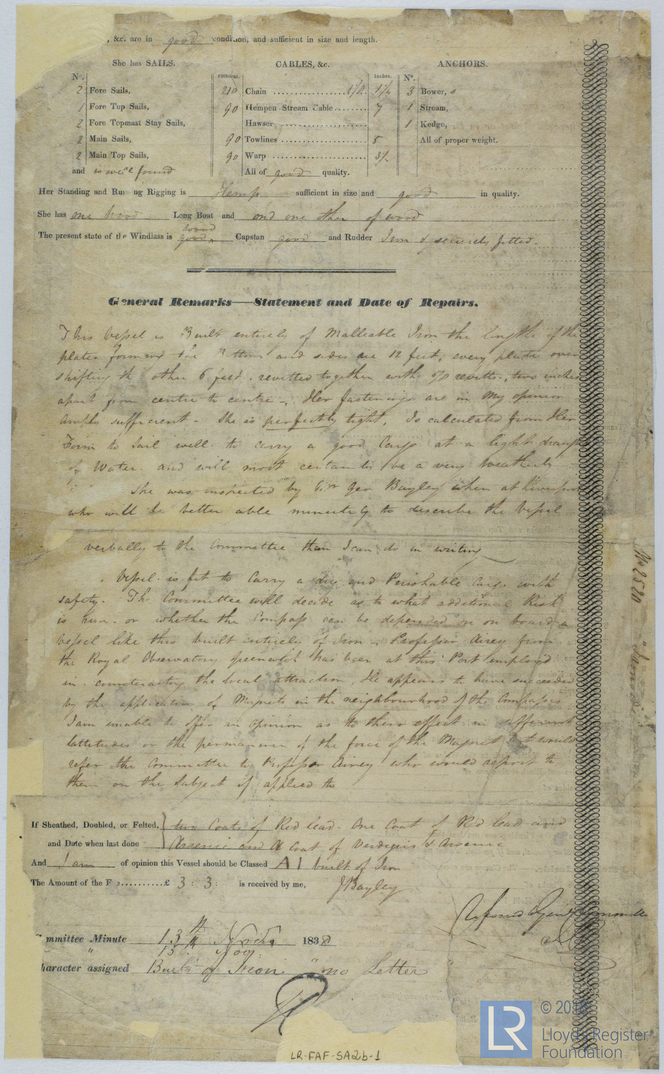 , &c. are in good condition, and sufficient in size and length.
She has SAILS. CABLES, &c. ANCHORS.
N°. FATHOMS. INCHES. N°.
2 Fore Sails, 210 Chain 1½ 3 Bower, s
1 Fore Top Sails, 90 Hempen Stream Cable 7 1 Stream,
2 Fore Topmast Stay Sails, Hawser 1 Kedge,
2 Main Sails, 90 Towlines 5 All of proper weight.
2 Main Top Sails, 90 Warp 3½
and is well found All of good quality.
Her Standing and Run ng Rigging is Hemp sufficient in size and good in quality.
She has one Long Boat and and one other of wood
The present state of the Windlass is good, Capstan good and Rudder Iron & securely fitted.
General Remarks—Statement and Date of Repairs.
This Vessel is Built entirely of Malleable Iron the lengths of the
plates forming the Bottom and sides are 12 feet, every plate over
shifting the other 6 feet, revetted together with revetts, two inches
apart from centre to centre, Her fastenings are in my opinion
amply sufficient. She is perfectly tight, Is calculated from Her
Form to sail well to carry a good Cargo at a light draft
of Water and will most certainly be a very weatherly
She was inspected by Mr Geo Bayley when at Liverpool
who will be better able minutely to describe the Vessel
verbally to the Committee than I can do in writing
Vessel is fit to Carry a dry and Perishable Cargo with
safety. The Committee will decide as to what additional Risk
is run or whether the Compass can be depended on on board a
vessel like this built entirely of Iron. Professor Airey from
the Royal Observatory Greenwich has been at this Port employed
in counteracting the local attraction, He appears to have succeeded
by the application of Magnets in the neighbourhood of the Compasses
I am unable to offer an opinion as to their effect in different
lattitudes or the permanence of the force of the Magnet but would
refer the Committee to Professor Airey who would assist to
them on the subject if applied to
If Sheathed, Doubled, or Felted, two Coats of Red lead. One Coat of Red lead and
and Date when last done Arsenic and A coat of Verdigris & Arsenic
And I am of opinion this Vessel should be Classed A1 built of Iron
The Amount of the F £ 3 : 3 : is received by me, J Bayley
mmittee Minute 13th 1838
13th Nov
haracter assigned Built of Iron "no Letter"
No 2520
"Ironside"
LR-FAF-SA26-1
LR
Lloyd's Register
Foundation